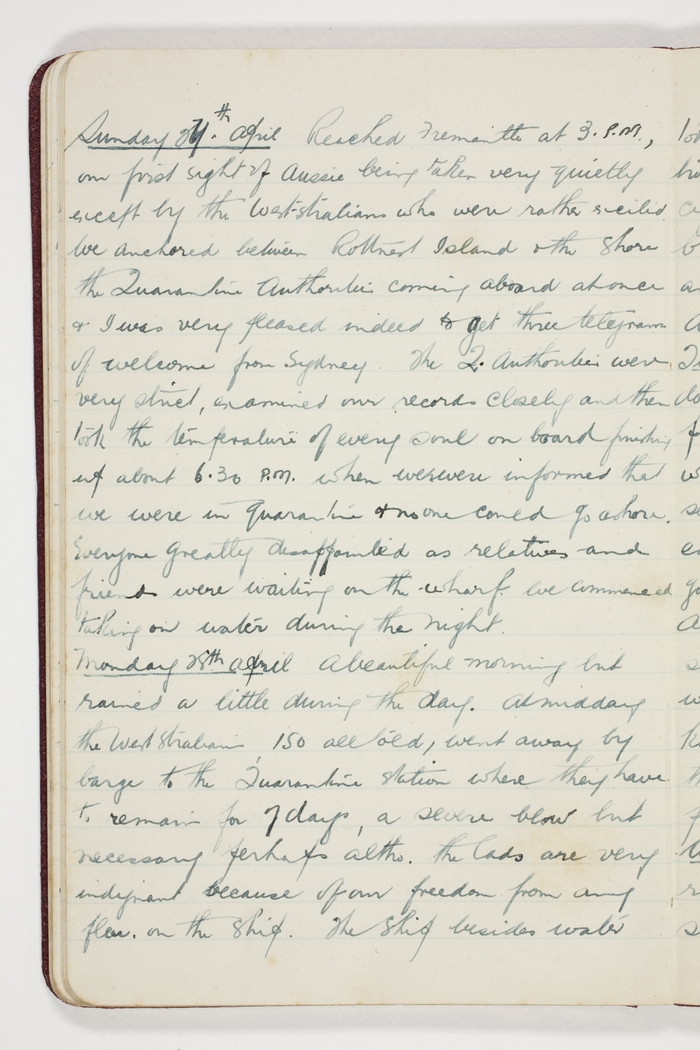 Sunday 27th April Reached Fremantle at 3. P.M.,
our first sight of Aussie being taken very quietly
except by the Westralians who were rather excited.
We anchored between Rottnest Island & the shore
the Quarantine Authorities coming aboard at once
& I was very pleased indeed to get three telegrams
of welcome from Sydney. The Q. Authorities were
very strict, examined our records closely and then
took the temperature of every soul on board finishing
up about 6.30 P.M. when we were informed that
we were in quarantine & no one could go ashore.
Everyone greatly disappointed as relatives and
friends were waiting on the wharf. We commenced
taking on water during the night.
Monday 28th April A beautiful morning but
rained a little during the day. At midday
the West Stralians, 150 all told, went away by
barge to the Quarantine Station where they have
to remain for 7 days, a severe blow but
necessary perhaps altho. the lads are very
indignant because of our freedom from any
flu. on the ship. The ship besides water